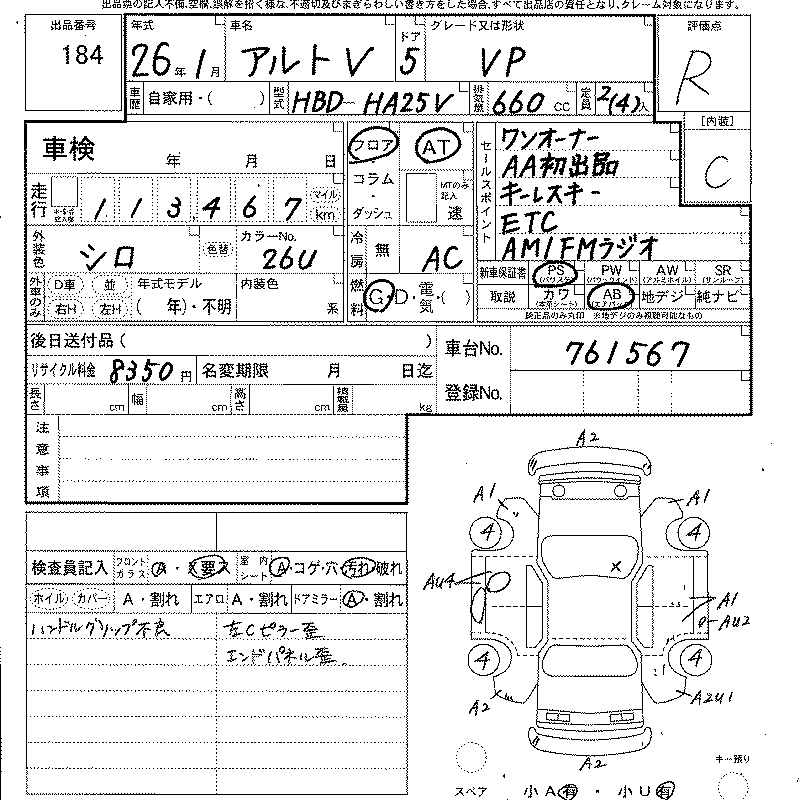 出品票の記入不備、空欄、誤解を招く様な、不適切及びまぎらわしい書き方をした場合、すべて出品店の責任となり、クレーム対象になります。
出品番号 184
年式 26年1月
車名 アルトV
ドア 5
グレード又は形状 VP
評価点 R
車歴 自家用・( )
型式 HBD-HA25V
排気量 660 CC
定員 2(4)人
[内装] C
車検 年 月 日
フロア コラム・ダッシュ
AT MTのみ記入 速
セールスポイント
ワンオーナー
AA初出品
キーレスキー
ETC
AM/FMラジオ
走行 113,467 マイル km
外装色 シロ 色替
カラーNo. 26U
冷房 無 AC
外車のみ D車 並 右H 左H
年式モデル ( 年)・不明
内装色 系
燃料 G・D・電気・( )
新車保証書 PS (パワステ) PW (パワーウィンド) AW (アルミホイル) SR (サンルーフ)
取説 カワ (本革シート) AB (エアバック) 地デジ 純ナビ
純正品のみ丸印 ※地デジのみ視聴可能なもの
後日送付品 ( )
リサイクル料金 8350円
名変期限 月 日迄
車台No. 761567
登録No.
長さ cm 幅 cm 高さ cm kg
注意事項
検査員記入 フロントガラス A・X要入
室内シート A・コゲ・穴・汚れ・破れ
ホイル カバー A・割れ エアロ A・割れ ドアミラー A・割れ
ハンドルグリップ不良
左Cピラー歪
エンドパネル歪
A2
A1 A1
4 4
X
AU4
A1
AU2
4 4
A2 A2U1
A2
スペア
小A有・小U有
キー預り